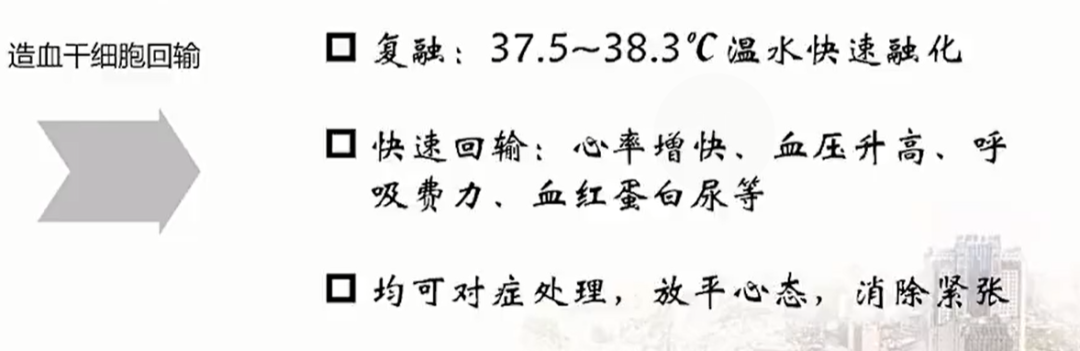 造血干细胞回输
复融：37.5~38.3℃温水快速融化
快速回输：心率增快、血压升高、呼
吸费力、血红蛋白尿等
均可对症处理，放平心态，消除紧张